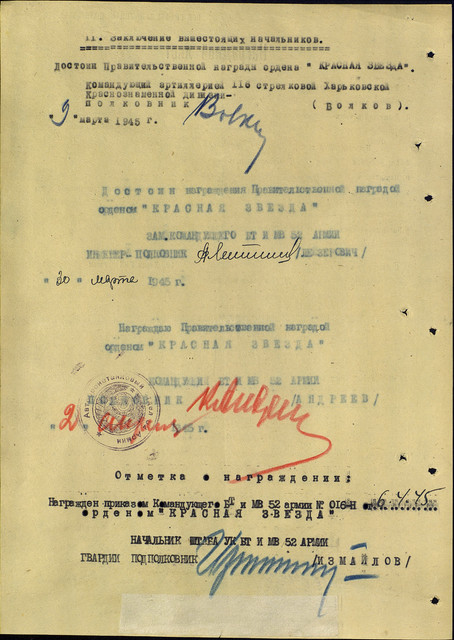 II. Заключение вышестоящих начальников.
Достоин Правительственной награды ордена " КРАСНАЯ ЗВЕЗДА".
Командующий артиллерией 116 стрелковой Харьковской
Краснознаменной дивизии-
ПОЛКОВНИК
( Волков).
"9" марта 1945 г.
Достоин награждения Правительственной наградой
орденом "КРАСНАЯ ЗВЕЗДА"
ЗАМ.КОМАНДУЮЩЕГО БТ И МВ 52 АРМИИ
ИНЖЕНЕР-ПОДПОЛКОВНИК
"20" марта 1945 г.
Награждаю Правительственной наградой
орденом "КРАСНАЯ ЗВЕЗДА"
КОМАНДУЮЩИЙ БТ И МВ 52 АРМИИ
ПОЛКОВНИК /АНДРЕЕВ/
"2" апреля 1945 г.
Отметка о награждении:
Награжден приказом Командующего БТ и МВ 52 армии № 016-Н от 6.4.45
орденом "КРАСНАЯ ЗВЕЗДА"
НАЧАЛЬНИК ШТАБА УК БТ И МВ 52 АРМИИ
ГВАРДИИ ПОДПОЛКОВНИК /ИЗМАЙЛОВ/